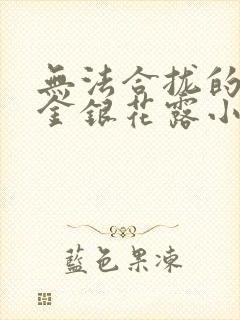 無法合拢的
金銀花露小
藍色果凍